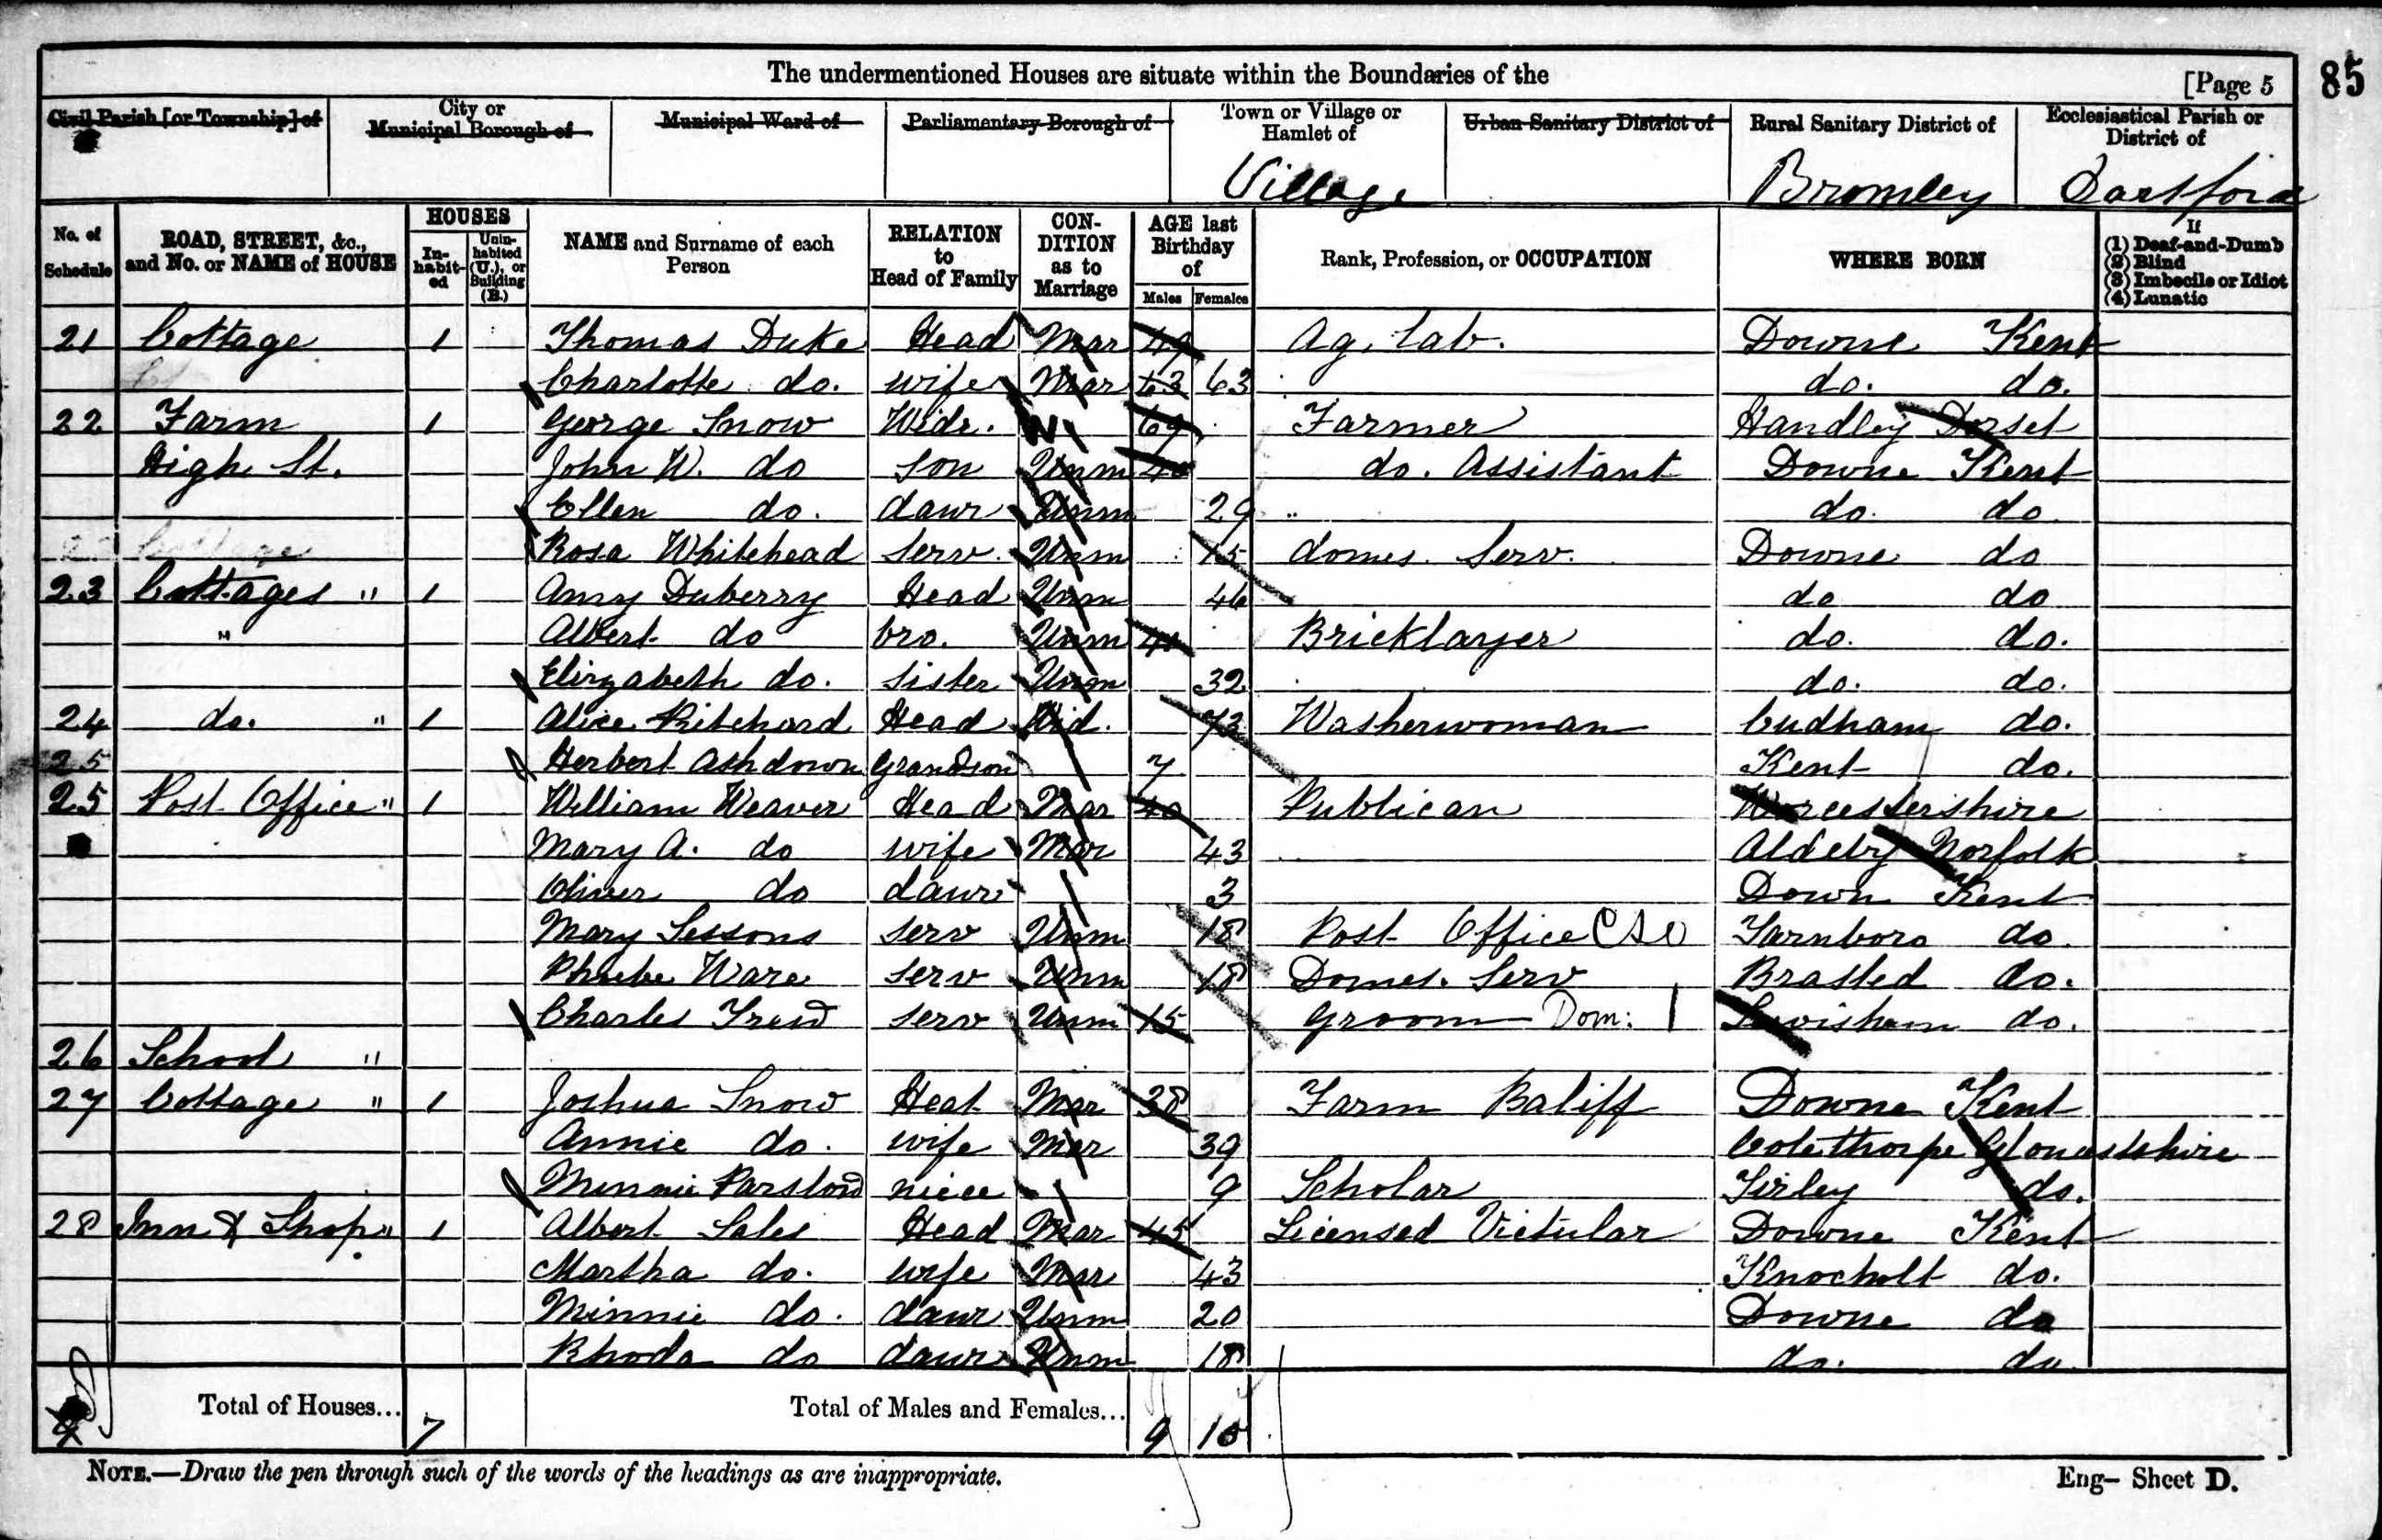 The undermentioned Houses are situate within the Boundaries of the
[Page 5
85
Civil Parish [or Township] of
City or Municipal Borough of
Municipal Ward of
Parliamentary Borough of
Town or Village or Hamlet of
Urban Sanitary District of
Rural Sanitary District of
Ecclesiastical Parish or District of
Village Bromley Dartford
No. of Schedule
ROAD, STREET, &c., and No. or NAME of HOUSE
HOUSES
In-habit-ed
Unin-habited (U.), or Building (B.)
NAME and Surname of each Person
RELATION to Head of Family
CON-DITION as to Marriage
AGE last Birthday of
Males Females
Rank, Profession, or OCCUPATION
WHERE BORN
If
(1) Deaf-and-Dumb
(2) Blind
(3) Imbecile or Idiot
(4) Lunatic
21 Cottage 1 Thomas Duke Head Mar 49 Ag. Lab. Downe Kent
Charlotte do. wife Mar 63 63 do. do.
22 Farm 1 George Snow Widr. W. 69 Farmer Handley Dorset
High St. John W. do son Unm 40 do. Assistant Downe Kent
Ellen do. daur Unm 29 " do. do
Rosa Whitehead Serv. Unm 15 domes. Serv. Downe do
23 Cottages " 1 Amy Duberry Head Unm 46 do do
" Albert do bro. Unm 41 Bricklayer do. do.
Elizabeth do. sister Unm 32 do. do.
24 do. " 1 Alice Pritchard Head Wid. 72 Washerwoman Cudham do.
25 Herbert Ashdown Grandson 7 Kent do.
25 Post Office " 1 William Weaver Head Mar 40 Publican Worcestershire
Mary A. do wife Mar 43 Aldeby Norfolk
Oliver do daur 3 Down Kent
Mary Sessons serv Unm 18 Post Office CSO Farnboro do.
Phoebe Ware serv Unm 18 Domes. Serv Brasted do.
Charles serv Unm 15 Groom Dom: Lewisham do.
26 School "
27 Cottage " 1 Joshua Snow Head Mar 38 Farm Baliff Downe Kent
Annie do. wife Mar 39 Colethorpe Gloucestshire
Minnie Parslow niece 9 Scholar Tirley do.
28 Inn & Shop " 1 Albert Sales Head Mar 45 Licensed Victular Downe Kent
Martha do. wife Mar 43 Knocholt do.
Minnie do. daur Unm 20 Downe do
Rhoda do daur Unm 18 do. do
Total of Houses... 7 Total of Males and Females... 9 16
NOTE.—Draw the pen through such of the words of the headings as are inappropriate.
Eng— Sheet D.